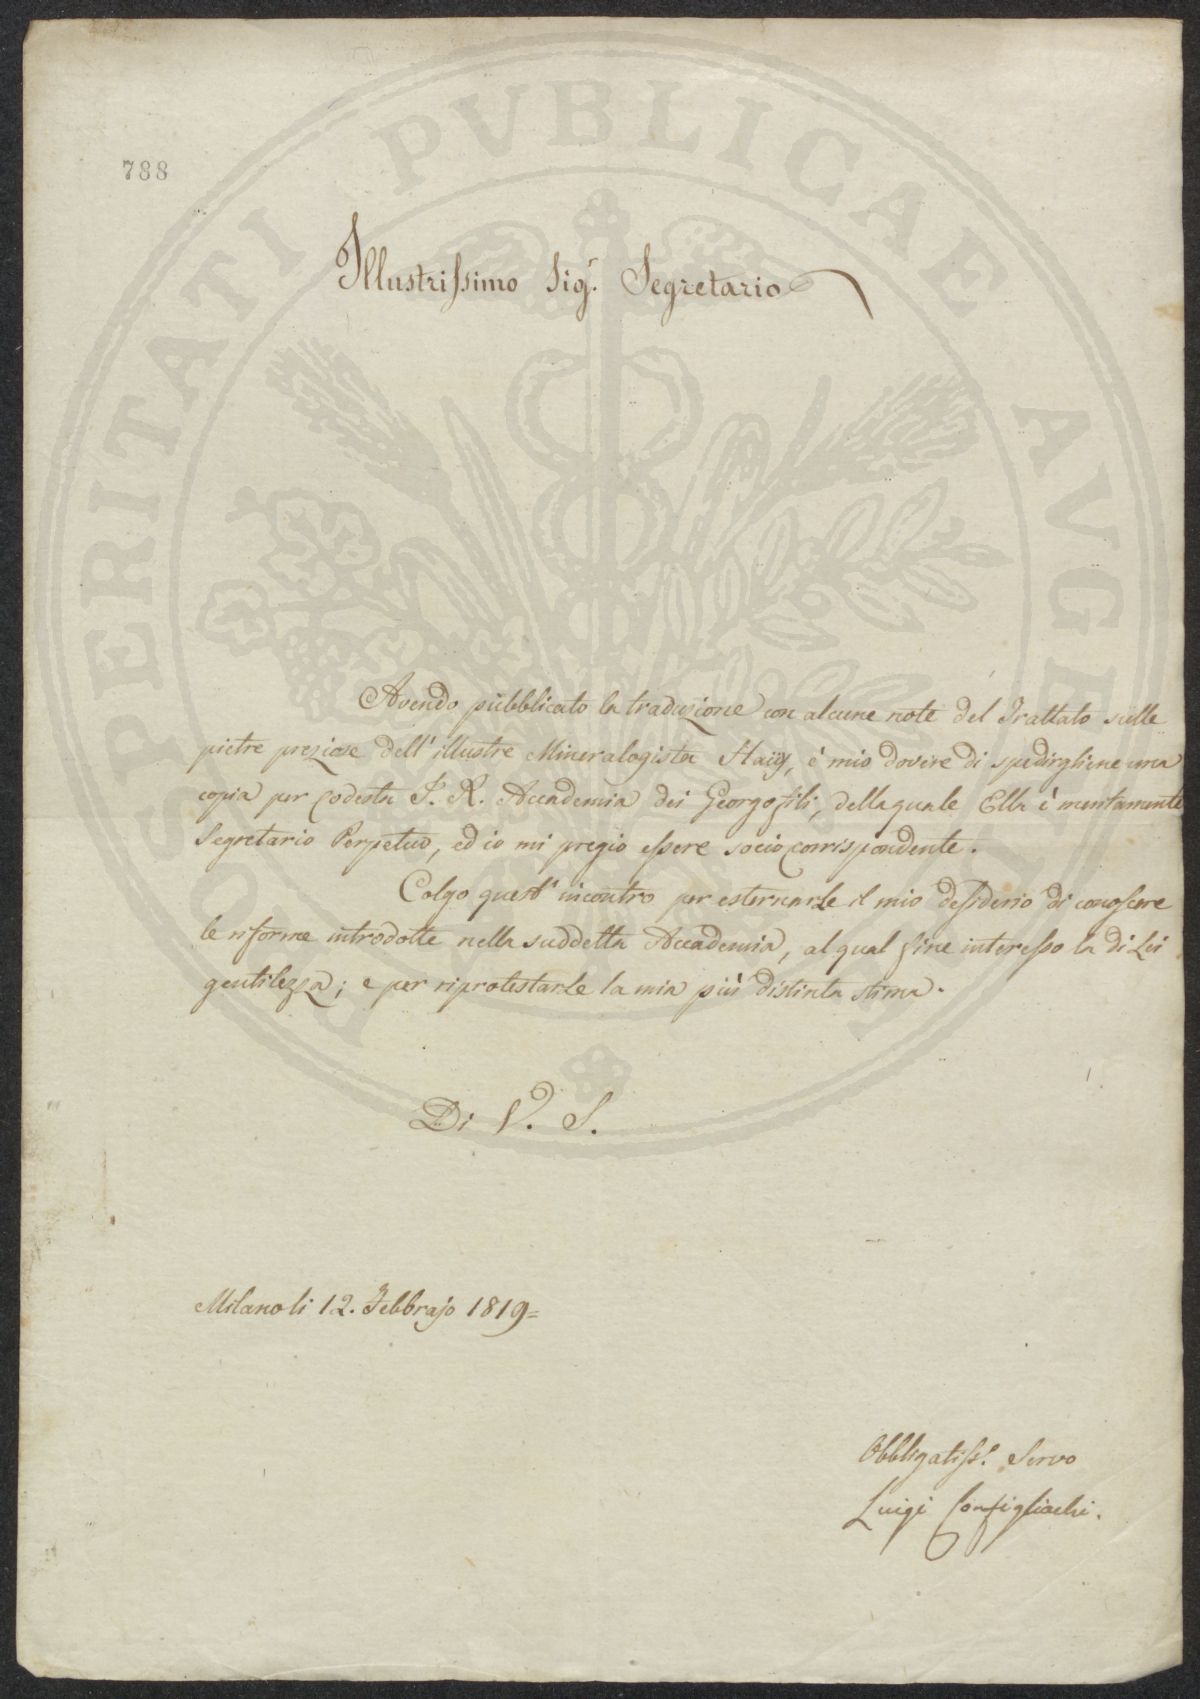 788
Illustrissimo Sig.r Segretario
Avendo pubblicato la traduzione con alcune note del Trattato sulle
pietre preziose dell'illustre Mineralogista Haüy, è mio dovere di spedirgliene una
copia per codesta I. R. Accademia dei Georgofili, della quale Ella è meritamente
Segretario Perpetuo, ed io mi pregio essere socio corrispondente.
Colgo quest'incontro per esternarLe il mio desiderio di conoscere
le riforme introdotte nella suddetta Accademia, al qual fine interesso la di Lei
gentilezza; e per riprotestarLe la mia più distinta stima.
Di V. S.
Milano li 12. Febbrajo 1819=
Obbligatiss.o Servo
Luigi Configliachi.
PROSPERITATI PVBLICAE AVGENDAE